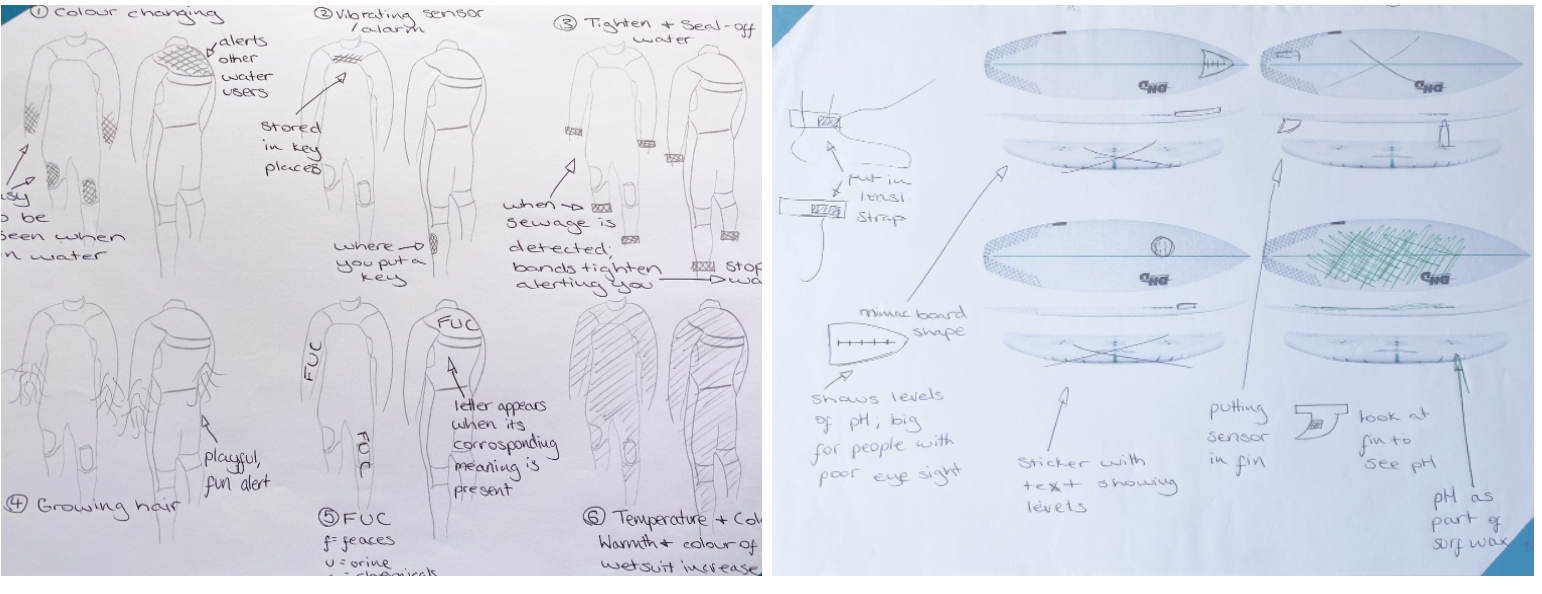 ① Colour changing
alerts
other
water
users
easy
to be
seen when
in water
② Vibrating sensor
/alarm
stored
in key
places
where
you put a
key
③ Tighten + Seal-off
water
when
sewage is
detected;
bands tighten
alerting you
stop
④ Growing hair
playful,
fun alert
⑤ FUC
f= feaces
u = urine
= chemicals
FUC
FUC
FUC
letter appears
when its
corrosponding
meaning is
present
⑥ Temperature + Col
Warmth + colour of
wetsuit increase
put in
leash
strap
mimac board
shape
shows levels
of pH; big
for people with
poor eye sight
sticker with
text showing
levels
putting
sensor
in fin
look at
fin to
see pH
pH as
part of
surf wax
DHD
DHD
DHD
DHD